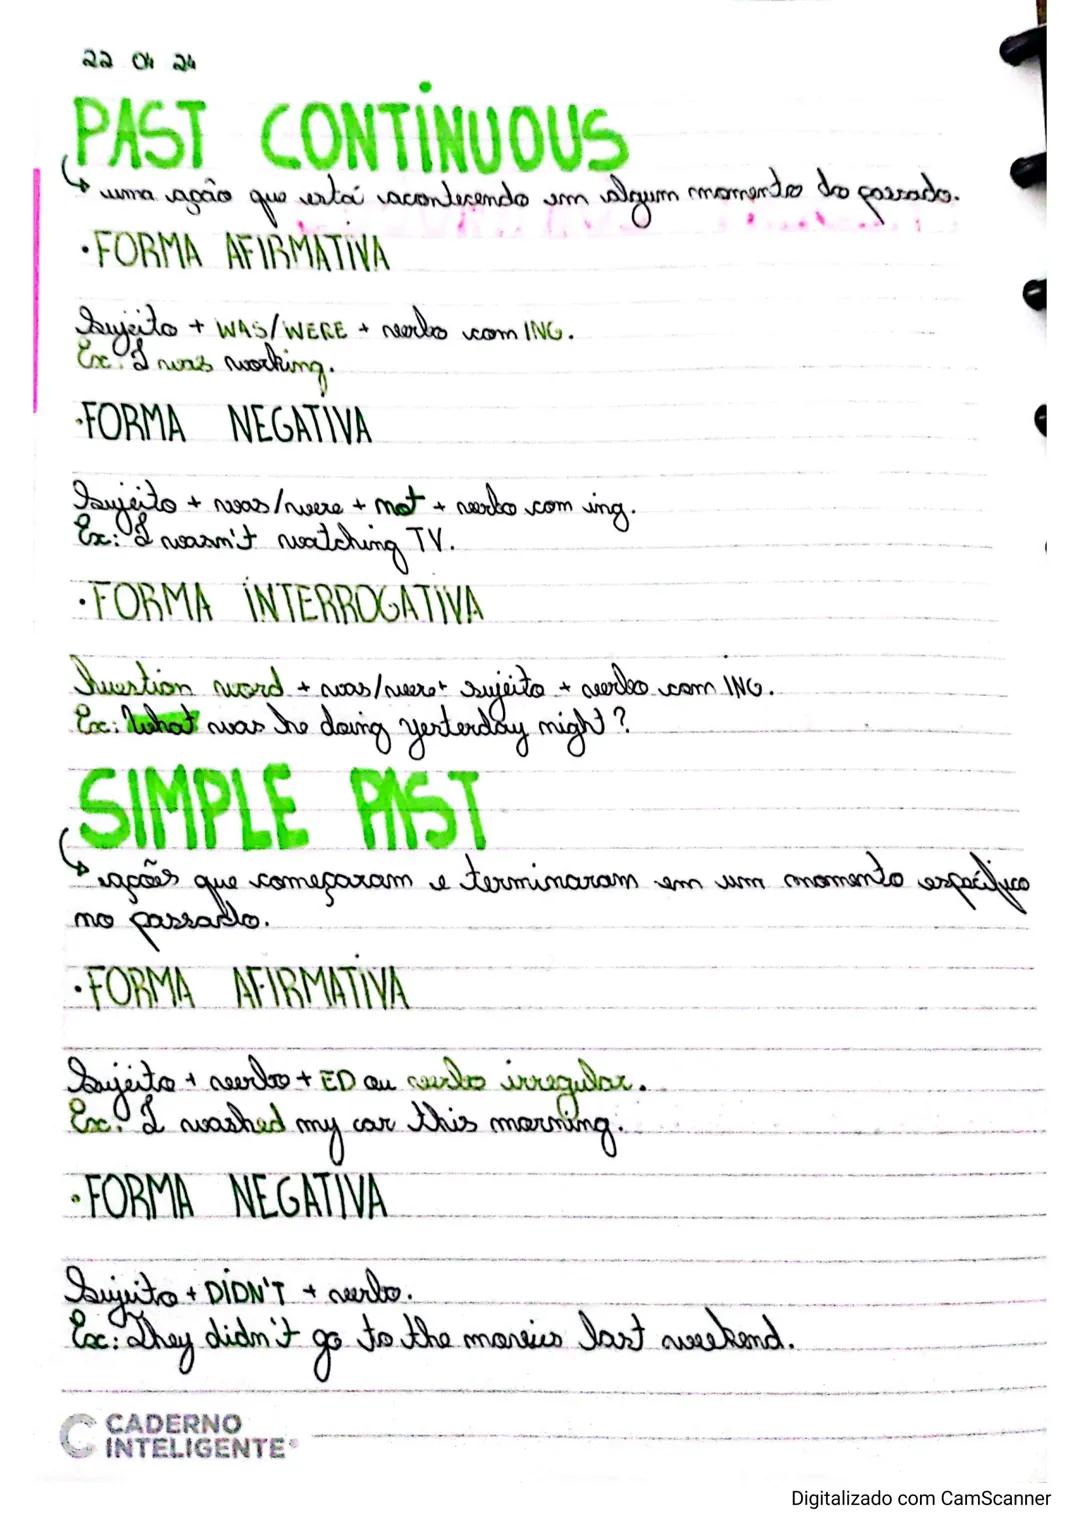 22 04 24
PAST CONTINUOUS
↳ uma ação que está acontecendo em algum momento do passado.
• FORMA AFIRMATIVA
Sujeito + WAS/WERE + verbo com ING.
Ex: I was working.
• FORMA NEGATIVA
Sujeito + was/were + not + verbo com ing.
Ex: I wasn't watching TV.
• FORMA INTERROGATIVA
Question word + was/were + sujeito + verbo com ING.
Ex: What was he doing yesterday night?
SIMPLE PAST
↳ ações que começaram e terminaram em um momento específico
no passado.
• FORMA AFIRMATIVA
Sujeito + verbo + ED ou verbo irregular.
Ex: I washed my car this morning.
• FORMA NEGATIVA
Sujeito + DIDN'T + verbo.
Ex: They didn't go to the movies last weekend.
CADERNO
INTELIGENTE®
Digitalizado com CamScanner